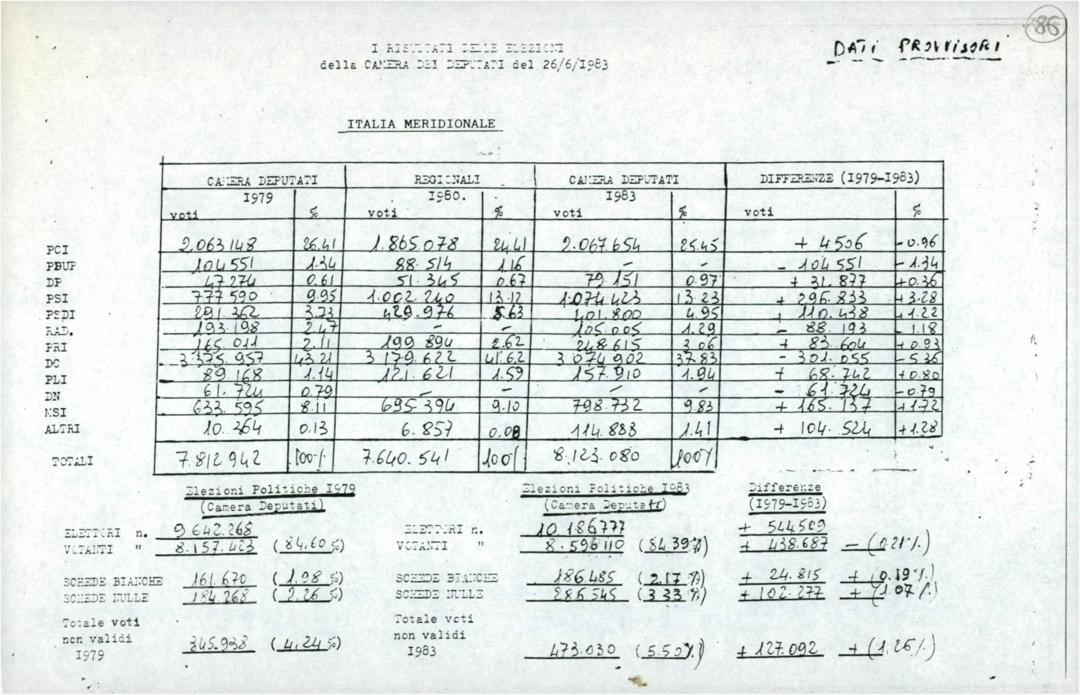 86
DATI PROVVISORI
I RISULTATI DELLE ELEZIONI
della CAMERA DEI DEPUTATI del 26/6/I983
ITALIA MERIDIONALE
CAMERA DEPUTATI I979 REGIONALI I980. CAMERA DEPUTATI I983 DIFFERENZE (I979-I983)
voti % voti % voti % voti %
PCI 2.063148 26.41 1.865.078 24.41 2.067.654 25.45 + 4506 -0.96
PDUP 104551 1.34 88.514 1.16 - - - 104551 -1.34
DP 47274 0.61 51.345 0.67 79.151 0.97 + 31.877 +0.36
PSI 777590 9.95 1.002.240 13.12 1.074.423 13.23 + 296.833 +3.28
PSDI 291.362 3.73 429.976 5.63 401.800 4.95 + 110.438 +1.22
RAD. 193.198 2.47 - - 105.005 1.29 - 88.193 -1.18
PRI 165.011 2.11 199.894 2.62 248.615 3.06 + 83.604 +0.93
DC 3.375.957 43.21 3.179.622 41.62 3.074.902 37.83 - 301.055 -5.36
PLI 89.168 1.14 121.621 1.59 157.910 1.94 + 68.742 +0.80
DN 61.724 0.79 - - - - - 61.724 -0.79
MSI 633.595 8.11 695.394 9.10 798.732 9.83 + 165.137 +1.72
ALTRI 10.364 0.13 6.857 0.08 114.888 1.41 + 104.524 +1.28
TOTALI 7.812942 100% 7.640.541 100% 8.123.080 100%
Elezioni Politiche I979 Elezioni Politiche I983 Differenze
(Camera Deputati) (Camera Deputati) (I979-I983)
ELETTORI n. 9642.268 ELETTORI n. 10.186777 + 544509
VOTANTI " 8.157.423 (84,60%) VOTANTI " 8.596110 (84.39%) + 438.687 -(0.21%)
SCHEDE BIANCHE 161.670 (1,98%) SCHEDE BIANCHE 186.485 (2.17%) + 24.815 +(0.19%)
SCHEDE NULLE 184.268 (2.26%) SCHEDE NULLE 286.545 (3.33%) +102.277 +(1.07%)
Totale voti Totale voti
non validi non validi
I979 345.938 (4,24%) I983 473.030 (5.50%) +127.092 +(1,26%)